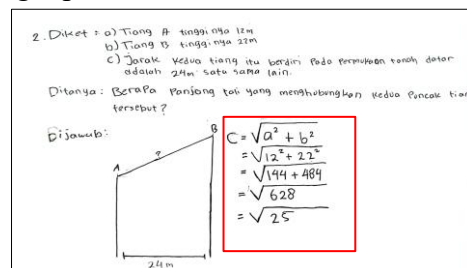 2. Diket : a) Tiang A tingginya 12m
b) Tiang B tingginya 22m
c) Jarak kedua tiang itu berdiri pada permukaan tanah datar
adalah 24m satu sama lain.
Ditanya : Berapa panjang tali yang menghubungkan kedua puncak tian
tersebut ?
Dijawab:
A
?
B
24m
C = √a² + b²
= √12² + 22²
= √144 + 484
= √628
= √25